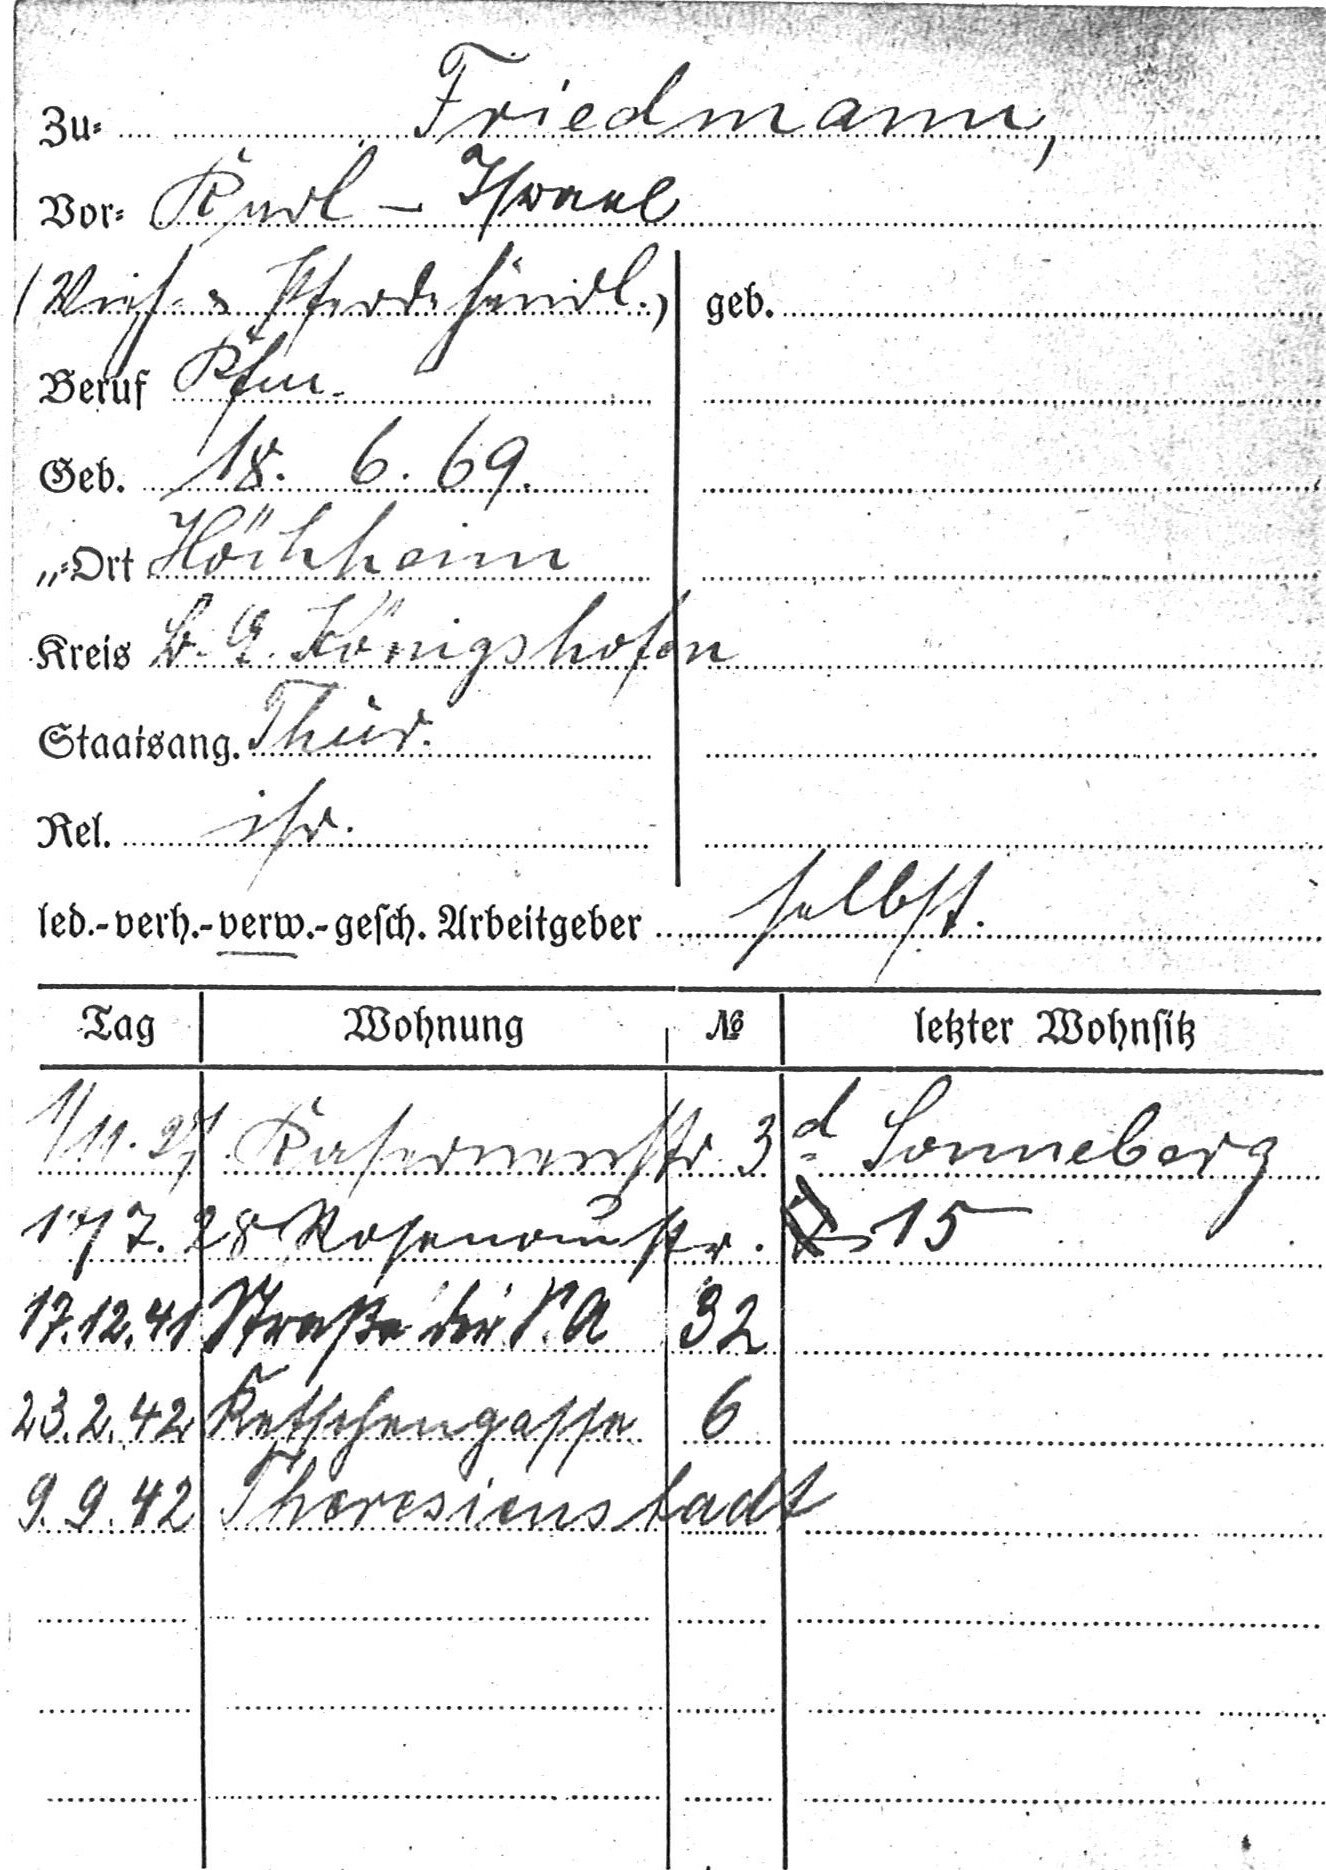 Zu= Friedmann,
Vor= Karl – Israel
(Vieh- & Pferdehändl.) geb.
Beruf Kfm.
Geb. 18. 6. 69.
„=Ort Höchheim
Kreis B. A. Königshofen
Staatsang. Thür.
Rel. isr.
led.-verh.-verw.-gesch. Arbeitgeber selbst.
Tag Wohnung № letzter Wohnsitz
1/11. 27 Kasernenstr. 3 d Sonneberg
17/7. 28 Rosenaustr. 15
17.12.41 Straße der S.A 32
23.2.42 Ketschengasse 6
9.9.42 Theresienstadt